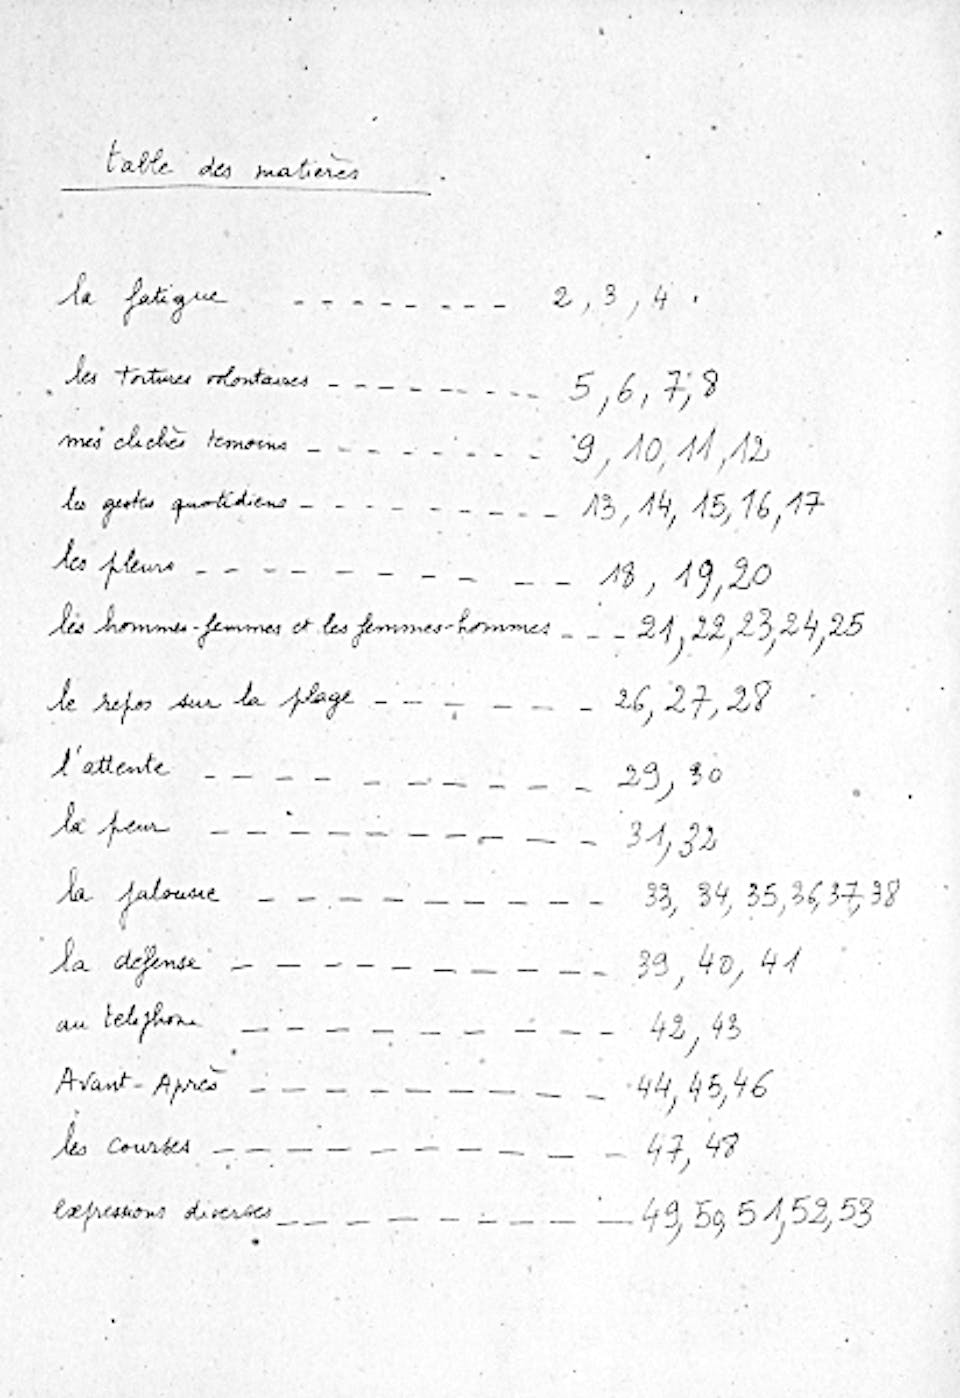 table des matières
la fatigue -------- 2, 3, 4.
les tortures volontaires -------- 5, 6, 7, 8
mes clichés temoins -------- 9, 10, 11, 12
les gestes quotidiens -------- 13, 14, 15, 16, 17
les pleurs ---------- 18, 19, 20
les hommes-femmes et les femmes-hommes --- 21, 22, 23, 24, 25
le repos sur la plage ------- 26, 27, 28
l'attente ---------- 29, 30
la peur ---------- 31, 32
la jalousie --------- 33, 34, 35, 36, 37, 38
la défense ---------- 39, 40, 41
au telephone --------- 42, 43
Avant-Après --------- 44, 45, 46
les courses ---------- 47, 48
expressions diverses -------- 49, 50, 51, 52, 53